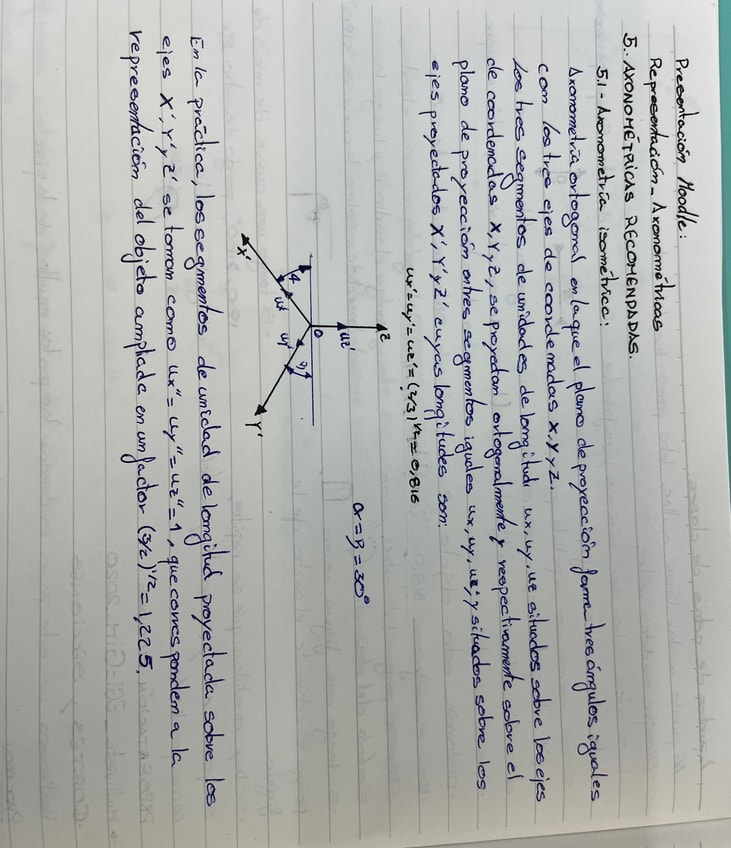 Presentación Moodle:
Representación - Axonométricas
5.- AXONOMÉTRICAS RECOMENDADAS.
5.1 - Axonometría isométrica:
Axonometría ortogonal en la que el plano de proyección forma tres ángulos iguales
con los tres ejes de coordenadas X, Y y Z.
Los tres segmentos de unidades de longitud ux, uy, uz situados sobre los ejes
de coordenadas X, Y y Z, se proyectan ortogonalmente y respectivamente sobre el
plano de proyección en tres segmentos iguales ux', uy', uz', y situados sobre los
ejes proyectados X', Y' y Z' cuyas longitudes son:
ux' = uy' = uz' = (2/3)^1/2 = 0,816
Z'
uz'
O
α = β = 30°
α
β
ux'
uy'
X'
Y'
En la práctica, los segmentos de unidad de longitud proyectada sobre los
ejes X', Y', Z' se toman como ux'' = uy'' = uz'' = 1, que corresponden a la
representación del objeto ampliada en un factor (3/2)^1/2 = 1,225.